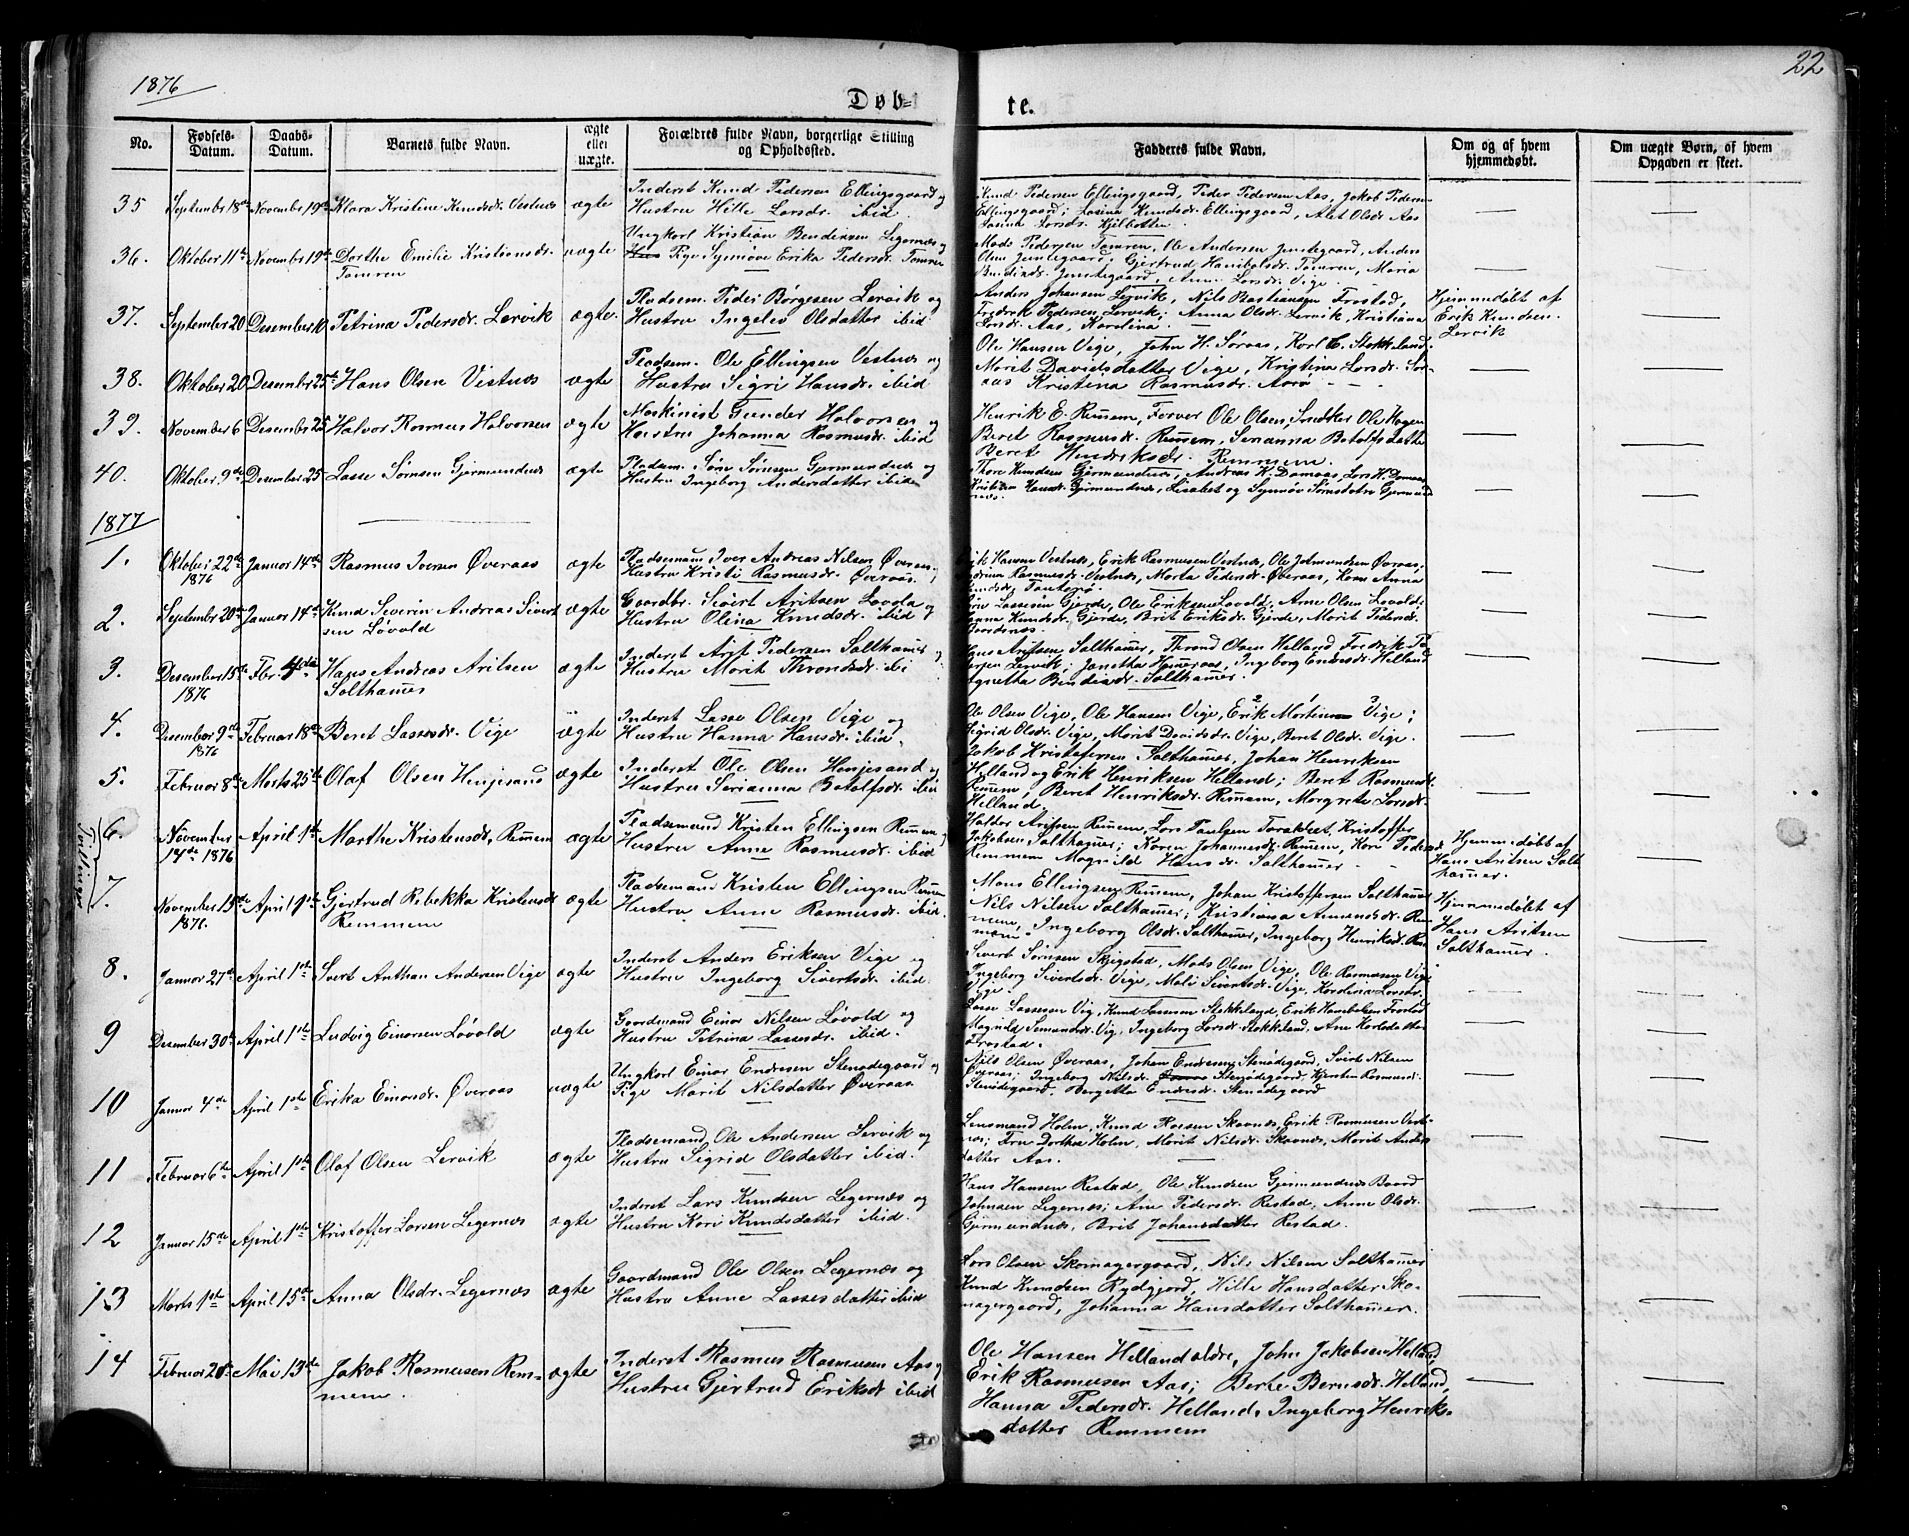 1876
22
Døb=
te.
No.
Fødsels-Datum.
Daabs-Datum.
Barnets fulde Navn.
ægte eller uægte.
Forældres fulde Navn, borgerlige Stilling og Opholdssted.
Fadderes fulde Navn.
Om og af hvem hjemmedøbt.
Om uægte Børn, af hvem Opgaven er skeet.
35 September 18de November 19de Klara Kristine Knudsdr. Vestnæs ægte
Inderst Knud Pedersen Ellingsgaard og
Hustru Hille Larsdr. ibid.
Knud Pedersen Ellingsgaard, Peder Pedersen Aas, Jakob Peders-
Ellingsgaard; Lasina Knudsdr. Ellingsgaard, Alet Olsdr. Aas
Larsdr. Kjelbotten
36. Oktober 11te November 19de Dorthe Emilie Kristiansdr. uægte
Tomren
Ungkarl Kristian Bendiksen Legernæs og
Pige Synnøve Erika Pedersdr. Tomren
Mads Pedersen Tomren, Ole Andersen Jenstegaard, Anders
Olsen Jenstegaard; Gjertrud Hanibalsdr. Tomren, Maria
Jenstegaard, Larsdr. Vige.
37. September 20 Desember 10 Petrina Pedersdr. Lervik ægte.
Pladsem. Peder Børgesen Lervik og
Hustru Ingelev Olsdatter ibid
Anders Johansen Lervik, Nils Bastiansen Frostad,
Fredrik Pedersen Lervik; Anna Olsdr. Lervik, Kristiana
Larsdr. Aas, Karolina
Hjemmedøbt af
Erik Knudsen
Lervik
38. Oktober 20 Desember 25de Hans Olsen Vestnæs ægte
Pladsem. Ole Ellingsen Vestnæs og
Hustru Sigri Hansdr. ibid
Ole Hansen Vige, John H. Søraas, Karl E. Stokkeland.
Marit Davidsdatter Vige, Kristina Larsdr. Sør-
aas Kristina Rasmusdr. Aarø
39. November 6 Desember 25 Halvor Rasmus Halvorsen ægte
Maskinist Gunder Halvorsen og
Hustru Johanna Rasmusdr. ibid
Henrik E. Remem, Farver Ole Olsen, Snedker Ole Hagen
Beret Rasmusdr. Remem, Serianna Botolfsdatter
Beret Henriksdr. Remmem.
40. Oktober 9de Desember 25 Lasse Sørnsen Gjermundnæs ægte
Pladsm. Søren Sørnsen Gjermundnæs og
Hustru Ingeborg Andersdatter ibid
Thore Knudsen Gjermundnæs, Andreas K. Damaas, Lars H. Damaas
Kristine Hansdr. Gjermundnæs, Lisabet og Synnøv Sørnsdatre Gjermund-
næs
1877
1. Oktober 22de Januar 14de Rasmus Iversen Øveraas ægte
1876
Pladsemand Iver Andreas Nilsen Øveraas,
Hustru Kristi Rasmusdr. Øveraas
Erik Hansen Vestnæs, Erik Rasmusen Vestnæs, Ole Johnundsen Øveraas,
Rasmusdr. Vestnæs, Marta Pedersdr. Øveraas, Anna
2. September 20de Januar 14de Knud Severin Andreas Sivert- ægte
sen Løvold
Gaardbr. Sivert Aritsen Lovold og
Hustru Olina Knudsdr. ibid
Lassesen Gjerde, Ole Eriksen Lovold, Arne Olsen Lovold;
Knudsdr. Gjerde, Brit Eriksdr. Gjerde, Marit Pedersdr.
3. Desember 15de Fbr. 4de Hans Andreas Aritsen ægte
1876 Salthamer
Inderst Arit Pedersen Salthamer og
Hustru Marit Throndsdr. ibi
Hans Aritsen Salthamer, Thrond Olsen Helland Fredrik Pe-
dersen Lervik; Janetha Hameraas, Ingeborg Endresdr. Helland
Agnetha Bendiksdr. Salthamer.
4. Desember 9de Februar 18de Beret Lassesdr. Vige ägte
1876
Inderst Lasse Olsen Vige og
Hustru Hanna Hansdr. ibid.
Ole Olsen Vige, Ole Hansen Vige, Erik Mortinsen Vige;
Sigrid Olsdr. Vige, Marit Davidsdr. Vige, Beret Olsdr. Vige.
5. Februar 8de Marts 25de Olaf Olsen Henjesand ægte
Inderst Ole Olsen Henjesand og
Hustru Serianna Botolfsdr. ibid
Jakob Kristofersen Salthamer, Johan Henriksen
Helland og Erik Henriksen Helland; Beret Rasmusdr.
Remem, Beret Henriksdr. Remem, Margrete Larsdr.
Helland.
Tvillinger
6. November April 1ste Marthe Kristensdr. Remem ægte
14de 1876
Pladsemand Kristen Ellingsen Remem og
Hustru Anne Rasmusdr. ibid
Haldor Aritsen Remem, Lars Paulsen Kristoffer
Jakobsen Salthamer; Karen Johannesdr. Remem, Kari Pedersd.
Remmem Magnild Hansdr. Salthamer
Hjemmedøbt af
Hans Aritsen Salt
hamer.
7. November 15de April 1ste Gjertrud Rebekka Kristensdr. ægte
1876. Remmem
Pladsemand Kristen Ellingsen Remem
Hustru Anne Rasmusdr. ibid.
Mons Ellingsen Remem, Johan Kristoffersen Salthamer
Nils Nilsen Salthamer; Kristiansa Amundsdr. Rem-
mem, Ingeborg Olsdr. Salthamer, Ingeborg Henriksdr. Rem-
mem
Hjemmedøbt af
Hans Aritsen
Salthamer.
8. Januar 27de April 1ste Sivert Anthan Andersen Vige ægte
Inderst Anders Eriksen Vige og
Hustru Ingeborg Sivertsdr. ibid.
Sivert Sørnsen Skjegstad, Mads Olsen Vige, Ole Rasmusen Vige
Ingeborg Sivertsdr. Vige, Mali Sivertsdr. Vige, Karolina Larsdr.
Vige
9 Desember 30te April 1ste Ludvig Einarsen Lövold ægte
Gaardmand Einar Nilsen Løvold og
Hustru Petrina Lassesdr. ibid
Lasse Lassesen Vig, Knud Lassesen Stokkeland, Erik Hansbakken Frostad
Magnild Amundsdr. Vig, Ingeborg Larsdr. Stokkeland, Ane Karlsdatter
Frostad.
10 Januar 4de April 1ste Erika Einarsdr. Øveraas uægte
Ungkarl Einar Endresen Stenødegaard og
Pige Marit Nilsdatter Øveraas
Nils Olsen Øveraas, Johan Endresen Stenødegaard, Sivert Nilsen
Øveraas; Ingeborg Nilsdr. Stenødegaard, Kjersten Rasmusdr.
Stenødegaard, Bergetta Endresdr. Stenødegaard
11 Februar 6te April 1ste Olaf Olsen Lervik ægte
Pladsemand Ole Andersen Lervik og
Hustru Sigrid Olsdatter ibid.
Lensmand Holm, Knud Roesen Skaanæs, Erik Rasmusen Vest-
næs; Fru Dorthea Holm, Marit Nilsdr. Skaanæs, Marit Anders
datter Aas.
12 Januar 15de April 1ste Kristoffer Larsen Legernæs ægte
Inderst Lars Knudsen Legernæs og
Hustru Kari Knudsdatter ibid.
Hans Hansen Restad, Ole Knudsen Gjermundnæs Baard
Johnsen Legernæs; Ane Pedersdr. Restad, Anne Olsdr.
Gjermundnæs, Brit Johansdatter Restad.
13 Marts 1ste April 15de Anna Olsdr. Legernæs ægte
Gaardmand Ole Olsen Legernæs og
Hustru Anne Lassesdatter ibid
Lars Olsen Skomagergaard, Nils Nilsen Salthamer
Knud Knudsen Rydgjord, Hille Hansdatter Sko-
magergaard, Johanna Hansdatter Salthamer.
14 Februar 20de Mai 13de Jakob Rasmusen Rem- ægte
mem.
Inderst Rasmus Rasmusen Aas og
Hustru Gjertrud Eriksdr ibid
Ole Hansen Helland ældre, John Jakobsen Helland,
Erik Rasmusen Aas; Berte Berntsdr. Helland,
Hanna Pedersdr. Helland, Ingeborg Henriks-
datter Remmem